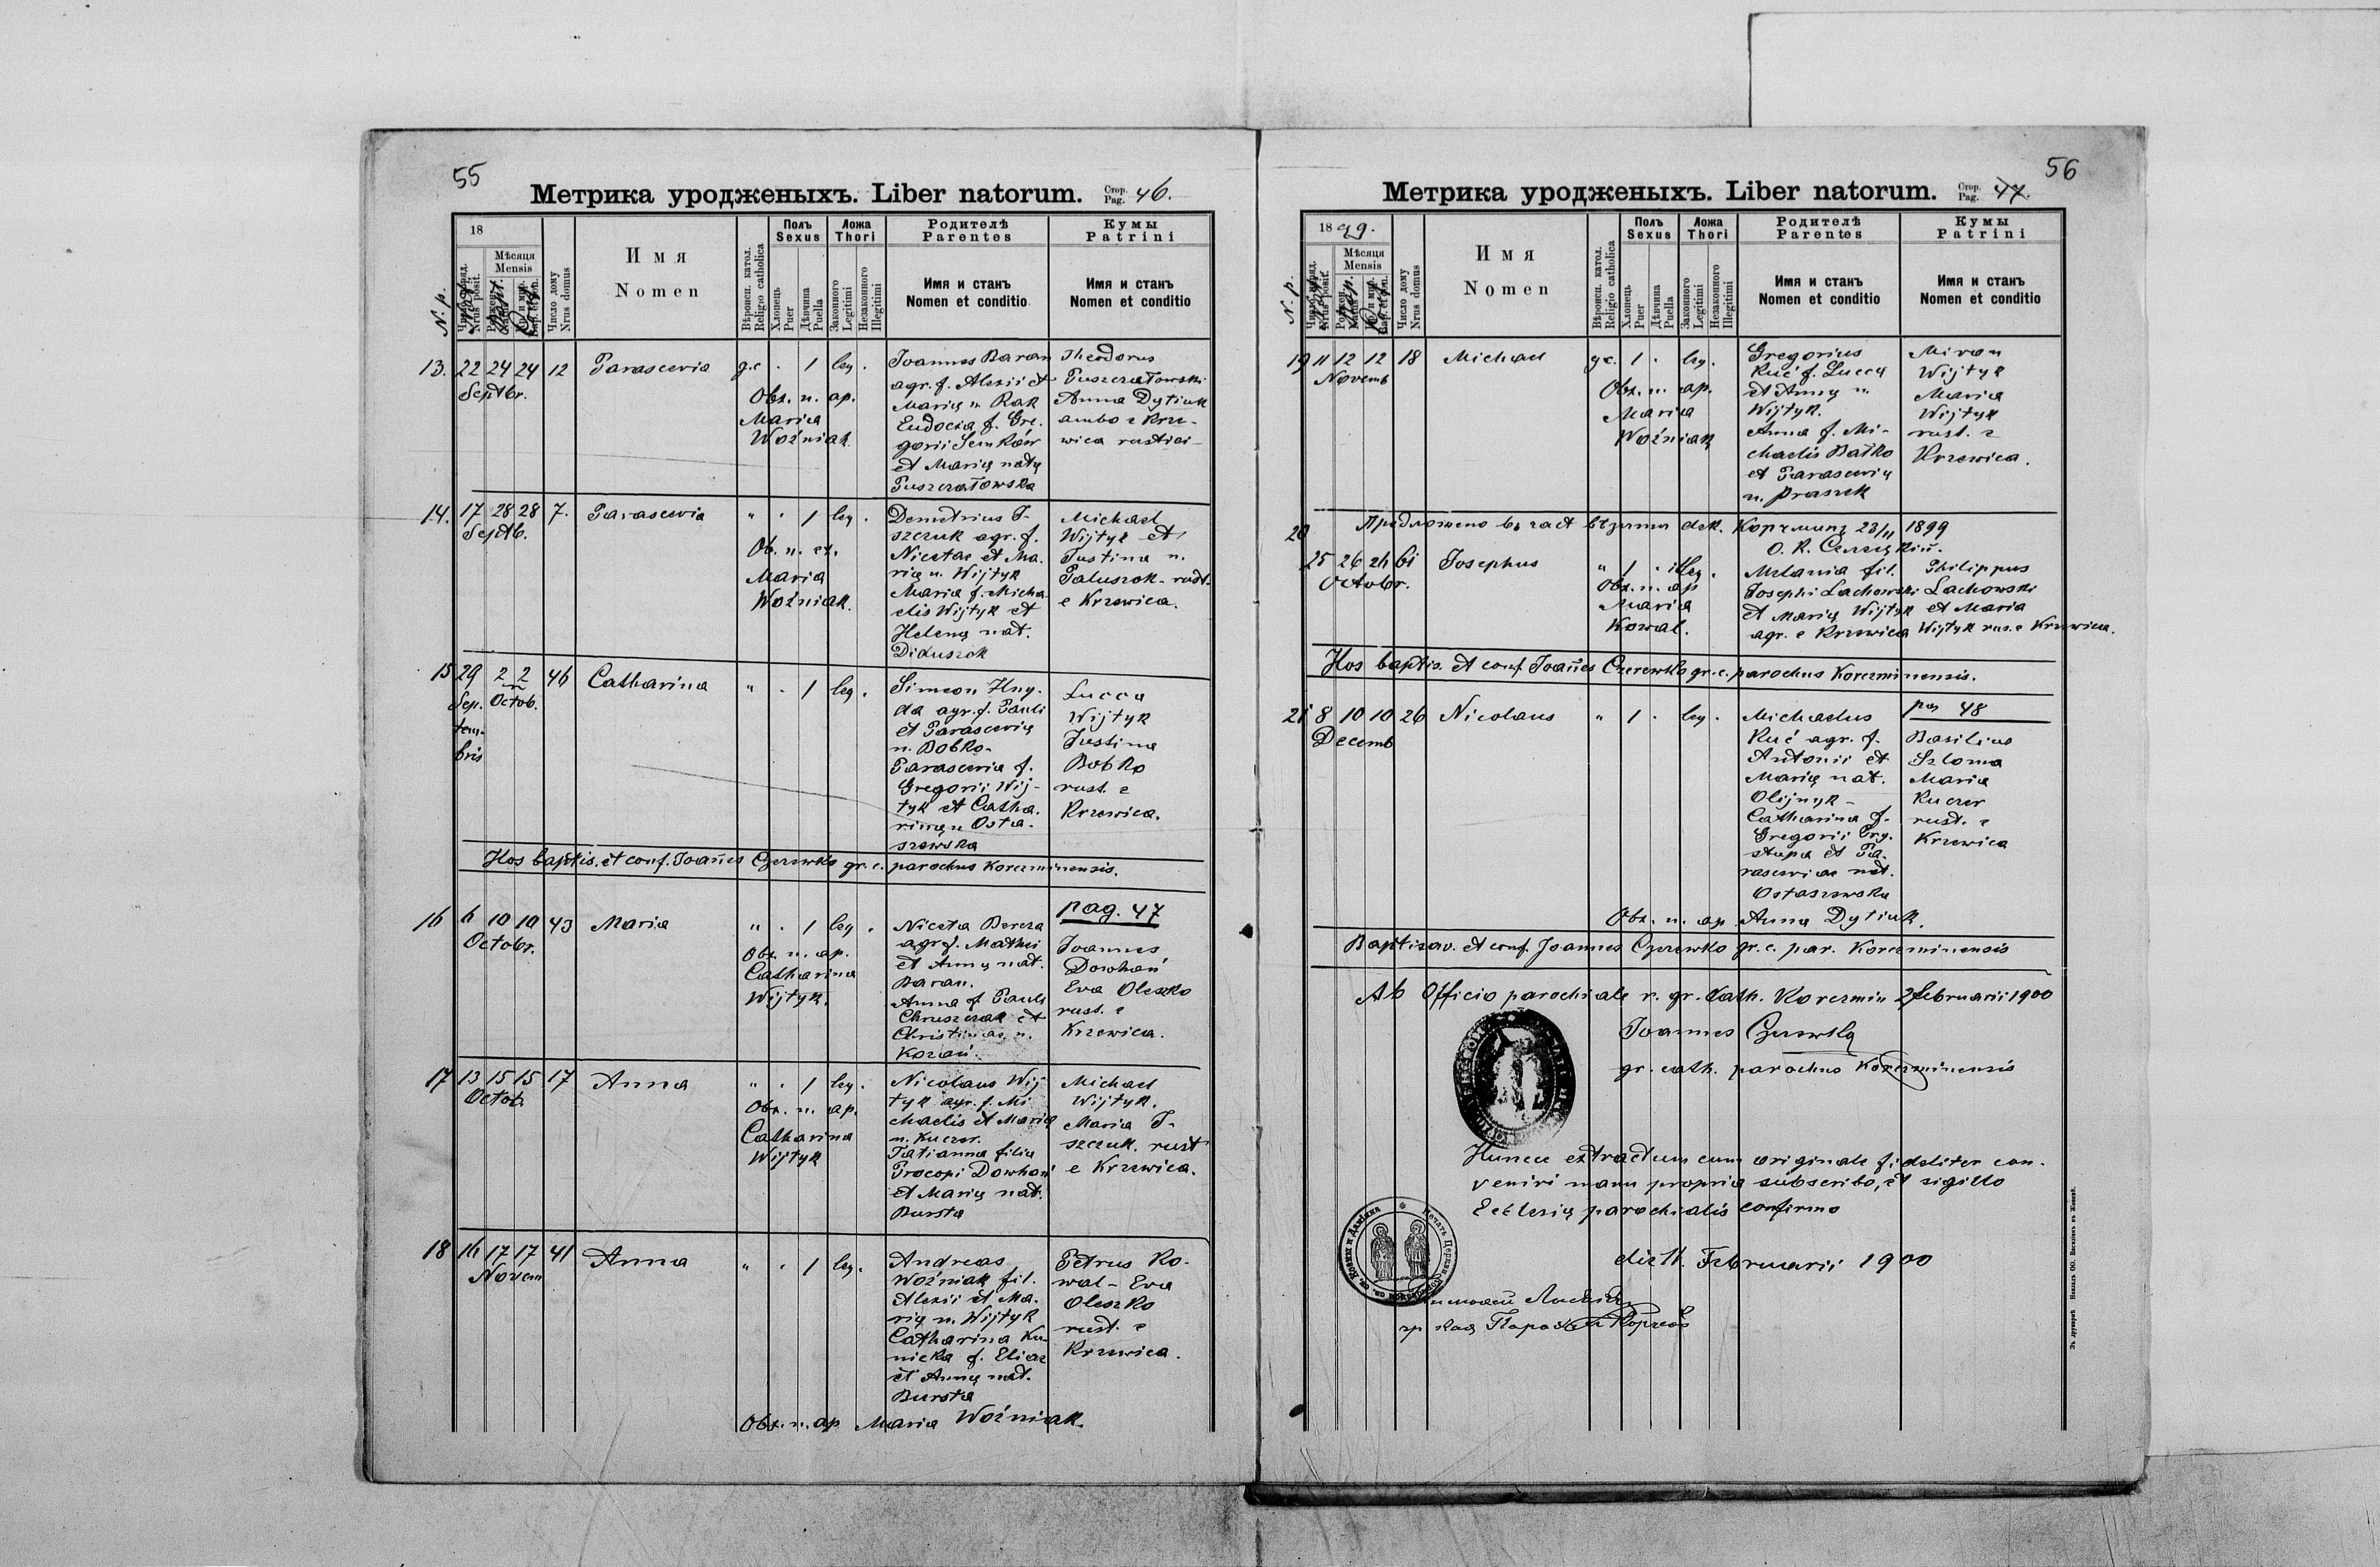 55
Метрика уродженыхъ. Liber natorum. Стор. Pag. 46.
18
Мѣсяця
Mensis
Число дому
Nrus domus
Имя
Nomen
Вѣроисп. катол.
Religio catholica
Полъ
Sexus
Хлопець
Puer
Дѣвчина
Puella
Ложа
Thori
Законного
Legitimi
Незаконного
Illegitimi
Родителѣ
Parentes
Имя и станъ
Nomen et conditio
Кумы
Patrini
Имя и станъ
Nomen et conditio
N. p.
13. 22 24 24 12 Parascevia g.c · 1 leg.
Septbr.
Obs. n. ap.
Maria
Woźniak
Joannes Baran
agr. f. Alexii et
Marię n. Rak
Eudocia f. Gre-
gorii Senków
et Marię natę
Puszczałowska
Theodorus
Puszczałowski
Anna Dytiuk
ambo e Krze-
wica rustici
14. 17 28 28 7. Parascevia " · 1 leg.
Septb.
Ob. n. ex.
Maria
Woźniak.
Demetrius I-
szczuk agr. f.
Nicetae et Ma-
rię n. Wijtyk
Maria f. Micha-
elis Wijtyk et
Helenę nat.
Diduszok
Michael
Wijtyk et
Justina n.
Paluszok - rust.
e Krzewica.
15 29 2 2 46 Catharina " · 1 leg.
Sep. Octob.
tem-
bris
Simeon Hny-
da agr. f. Pauli
et Parascevię
n. Bobko -
Parascevia f.
Gregorii Wij-
tyk et Catha-
rinę n Osta-
szewska
Lucca
Wijtyk
Justina
Bobko
rust. e
Krzewica.
Hos baptis. et conf. Joannes Czerewko gr. c. parochus Korczminensis.
16 6 10 10 43 Maria " · 1 leg.
Octobr.
Obs. n. ap.
Catharina
Wijtyk.
Niceta Bereza
agr f. Mathei
et Annę nat.
Baran.
Anna f. Pauli
Chruszczak et
Christinae n.
Kozań.
pag. 47
Joannes
Dowhań
Eva Oleszko
rust. e
Krzewica.
17 13 15 15 17 Anna " · 1 leg.
Octob.
Obs. n. ap.
Catharina
Wijtyk
Nicolaus Wij
tyk agr. f. Mi
chaelis et Marię
n. Kuczer.
Tatianna filia
Procopi Dowhań
et Marię nat.
Bursta
Michael
Wijtyk.
Maria I-
szczuk. rust
e Krzewica.
18 16 17 17 41 Anna " · 1 leg.
Novem
Andreas
Woźniak fil.
Alexii et Ma-
rię n. Wijtyk
Catharina Ku-
nicka f. Eliae
et Annę nat.
Bursta
Petrus Ko-
wal - Eva
Oleszko
rust. e
Krzewica.
Obs. n. ap Maria Woźniak.
56
Метрика уродженыхъ. Liber natorum. Стор. Pag. 47.
1899.
Мѣсяця
Mensis
Число дому
Nrus domus
Имя
Nomen
Вѣроисп. катол.
Religio catholica
Полъ
Sexus
Хлопець
Puer
Дѣвчина
Puella
Ложа
Thori
Законного
Legitimi
Незаконного
Illegitimi
Родителѣ
Parentes
Имя и станъ
Nomen et conditio
Кумы
Patrini
Имя и станъ
Nomen et conditio
N. p.
19 11 12 12 18 Michael g.c. 1 · leg.
Novemb
Obs. n. ap.
Maria
Woźniak
Gregorius
Kuć f. Luccę
et Annę n.
Wijtyk.
Anna f. Mi-
chaelis Bałko
et Parascevię
n. Praszek
Miron
Wijtyk
Maria
Wijtyk
rust. e
Krzewica.
20 Предложено dek. Корчминъ 23/11 1899
25 26 26 61 Josephus " 1 · illeg.
Octobr.
Obs. n. ap
Maria
Kowal.
Melania fil.
Josephi Lachowski
et Marię Wijtyk
agr. e Krzewica
Philippus
Lachowski
et Maria
Wijtyk rus. e Krzewica.
Hos baptis. et conf. Joannes Czerewko gr. c. parochus Korczminensis.
21 8 10 10 26 Nicolaus " 1 · leg.
Decemb
Michaelus
Kuć agr. f.
Antonii et
Marię nat.
Olijnyk -
Catharina f.
Gregorii Pry-
stupa et Pa-
rasceviae nat.
Ostaszewska
pag 48
Basilius
Szloma
Maria
Kuczer
rust. e
Krzewica
Obs. n. ap. Anna Dytiuk.
Baptisav. et conf. Joannes Czerewko gr. c. par. Korczminensis
Ab Officio parochiale r. gr. Cath. Korczmin 2 februarii 1900
Joannes Czerewko
gr. cath. parochus Korczminensis
Hunce extractum cum originale fideliter con-
veniri manu propria subscribo, et sigillo
Ecclesię parochialis confirmo
die 11. Februarii 1900